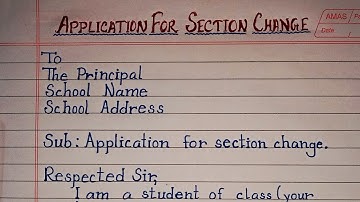 APPLICATION FOR SECTION CHANGE
AMAS
Date
To
The Principal
School Name
School Address
Sub: Application for section change.
Respected Sir,
I am a student of class (your